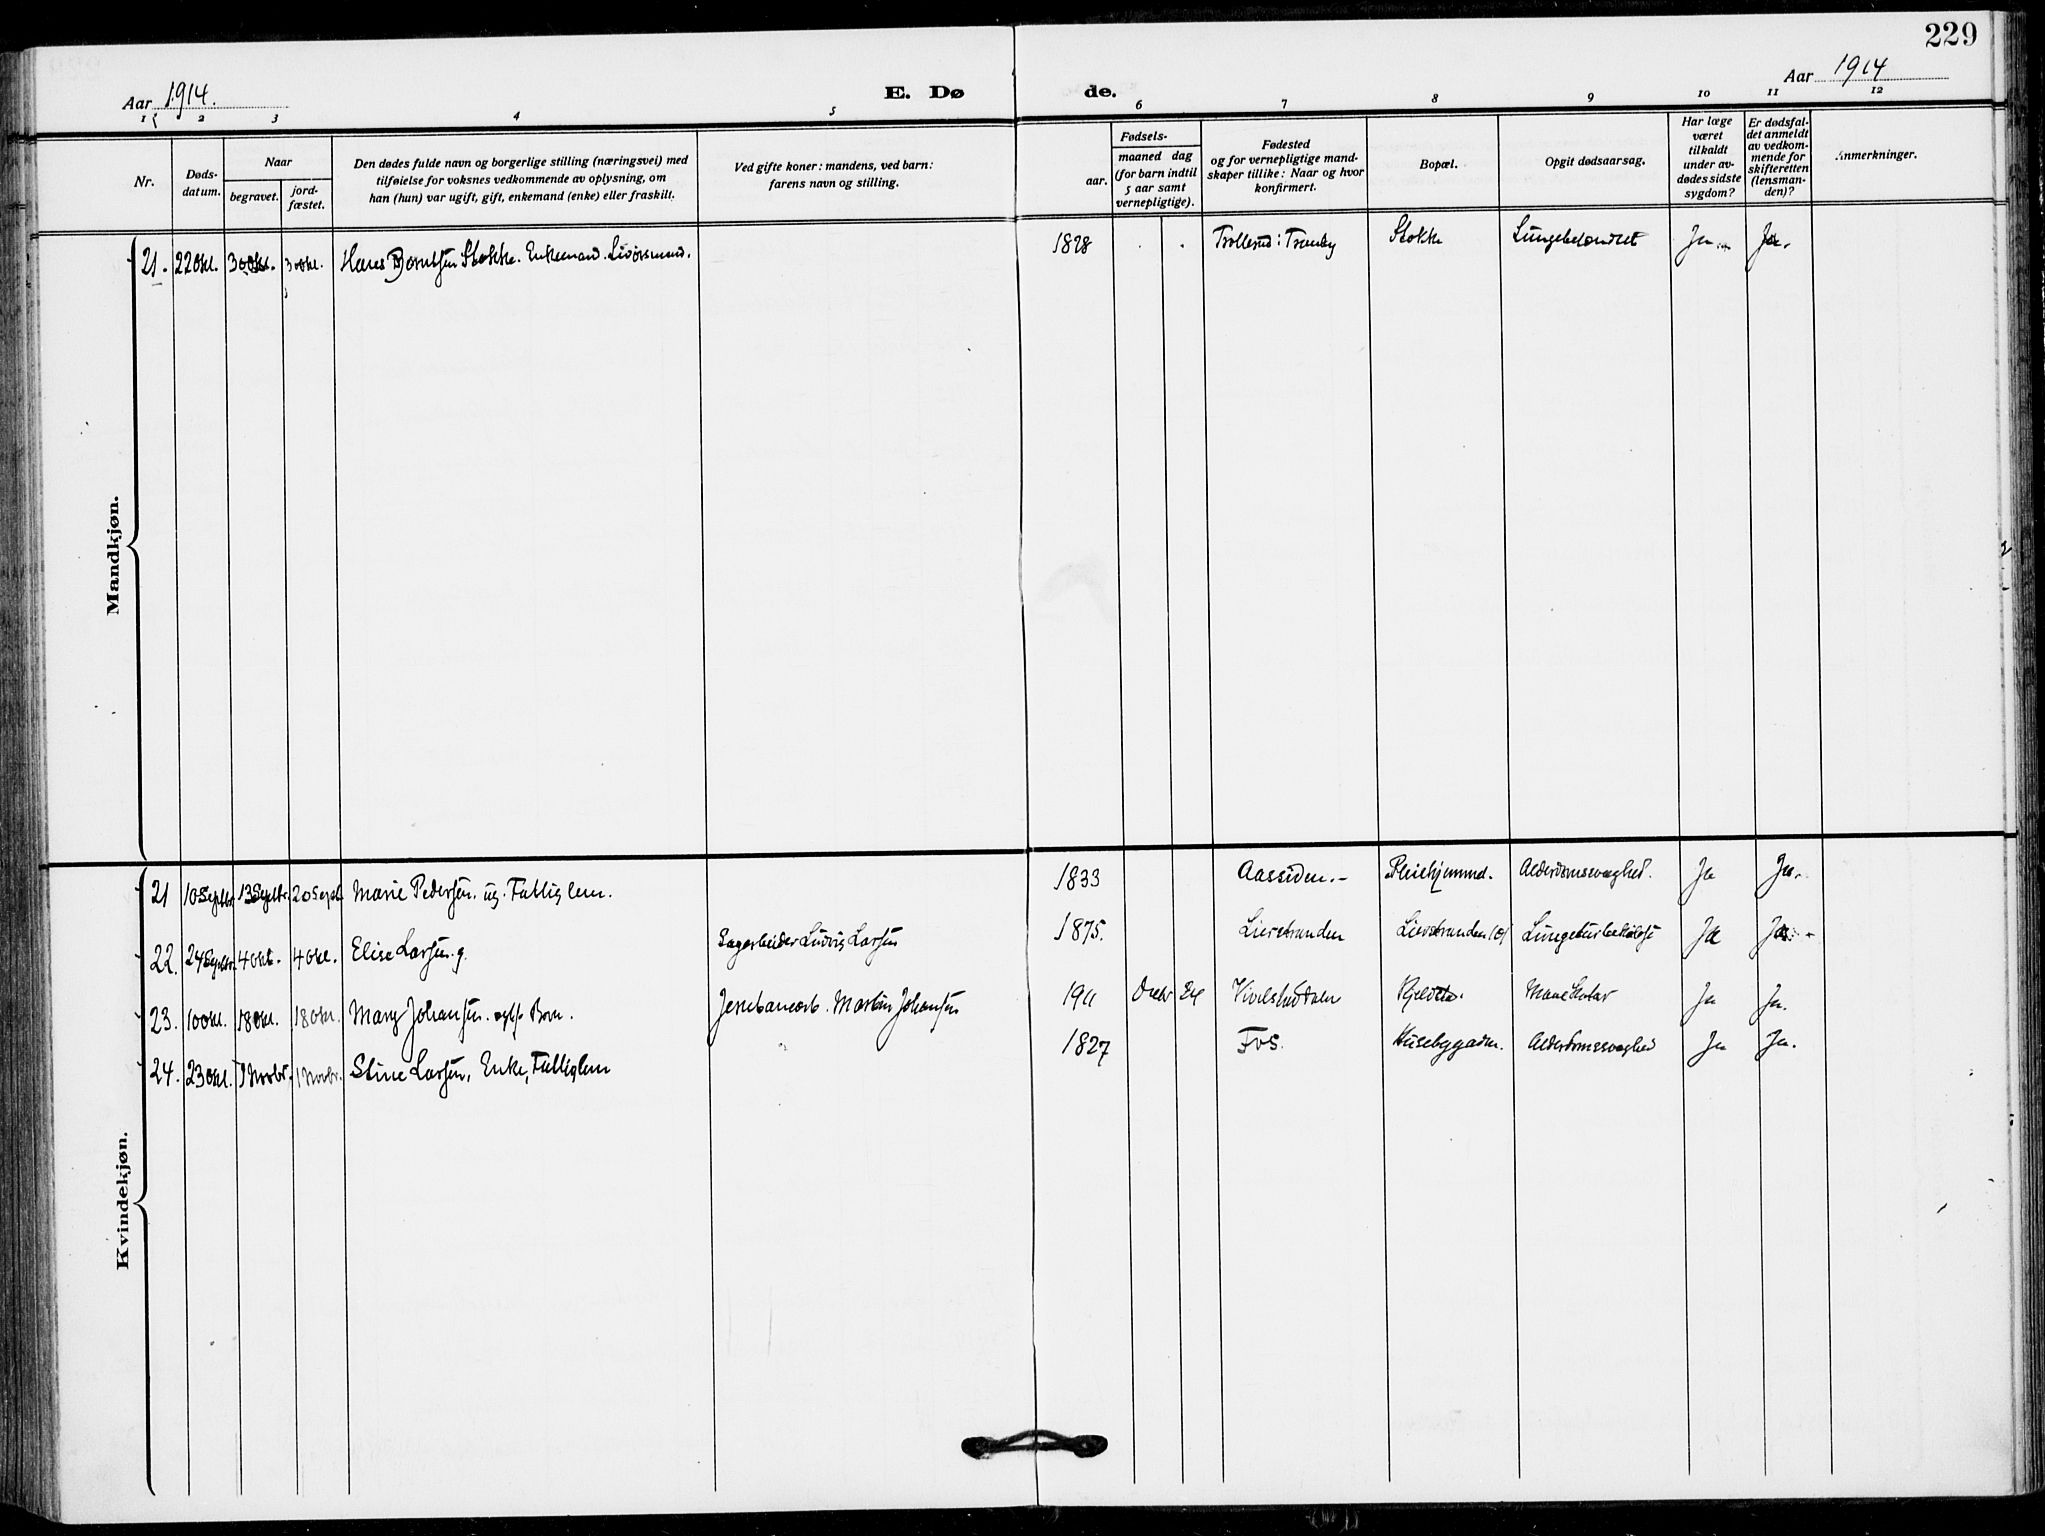 229
Aar 1914.
E. Døde.
Aar 1914
1 2 3 4 5 6 7 8 9 10 11 12
Nr.
Døds-
datum.
Naar
begravet.
jord-
fæstet.
Den dødes fulde navn og borgerlige stilling (næringsvei) med
tilføielse for voksnes vedkommende av oplysning, om
han (hun) var ugift, gift, enkemand (enke) eller fraskilt.
Ved gifte koner: mandens, ved barn:
farens navn og stilling.
Fødsels-
aar.
maaned dag
(for barn indtil
5 aar samt
vernepligtige).
Fødested
og for vernepligtige mand-
skaper tillike: Naar og hvor
konfirmert.
Bopæl.
Opgit dødsaarsag.
Har læge
været
tilkaldt
under av-
dødes sidste
sygdom?
Er dødsfal-
det anmeldt
av vedkom-
mende for
skifteretten
(lensman-
den)?
Anmerkninger.
Mandkjøn.
21. 22 Okt. 30 Okt. 30 Okt. Hans Berntsen Stokke. Enkemand. 1828 Trollerud i Tranby Stokke Lungebetændelse Ja Ja.
Kvindekjøn.
21 10 Septbr. 13 Septbr. 20 Sept. Marie Pedersen. ug. Fattiglem. 1833 Aassiden.- Pleiehjemmet. Alderdomssvaghed. Ja Ja.
22. 24 Septbr. 4 Okt. 4 Okt. Elise Larsen. g. Sagarbeider Ludvig Larsen 1875. Lierstranden Lierstranden Lungetuberkulose Ja Ja. -
23. 10 Okt. 18 Okt. 18 Okt. Mary Johansen. Barn. Jernbanearb. Martin Johansen 1911 24 Ja Ja.
24. 23 Okt. 1 Novbr. 1 Novbr. Stine Larsen, Enke, Fattiglem 1827 Husebygaden. Alderdomssvaghed Ja Ja.